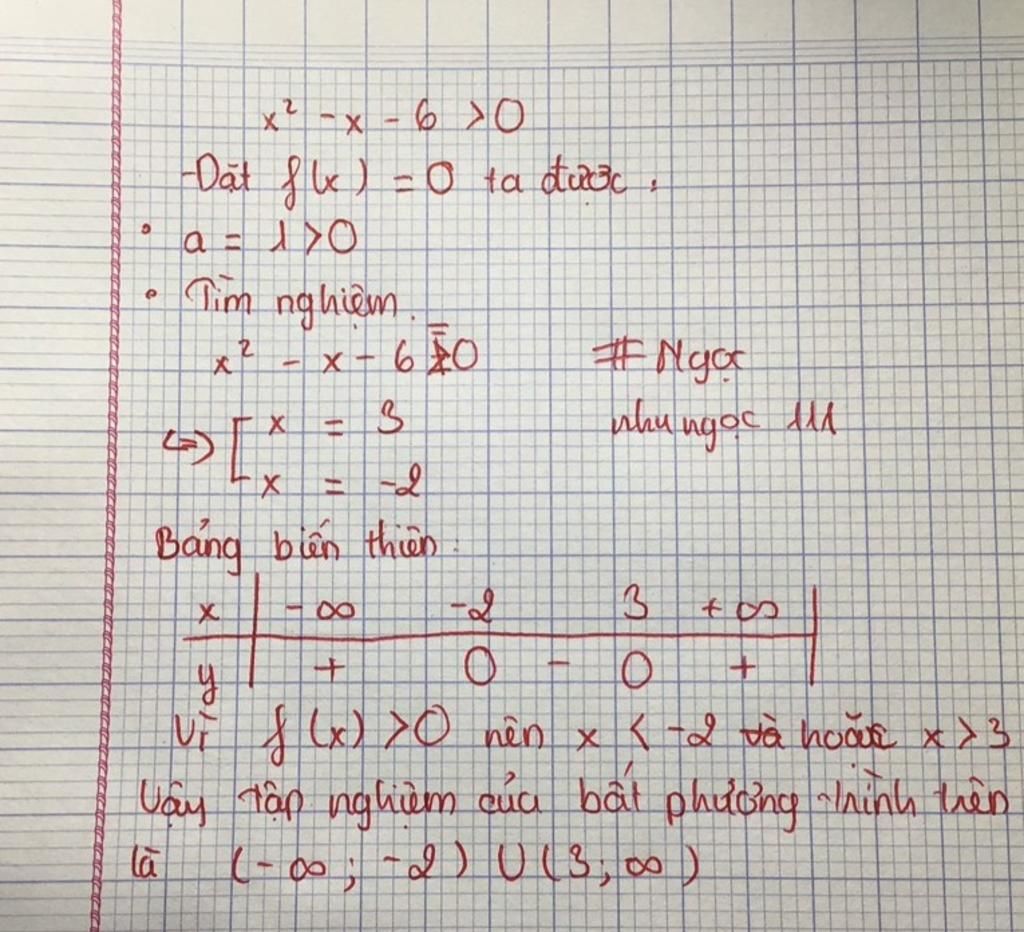 x² - x - 6 > 0
-Dặt f(x) = 0 ta được :
• a = 1 > 0
• Tìm nghiệm.
x² - x - 6 = 0
# Ngọc
nhungọc 111
<=> [ x = 3
x = -2
Bảng biến thiên.
x | -∞ -2 3 +∞ |
y | + 0 - 0 + |
Vì f(x) > 0 nên x < -2 và hoặc x > 3
Vậy tập nghiệm của bất phương trình trên
là (-∞; -2) ∪ (3; ∞)